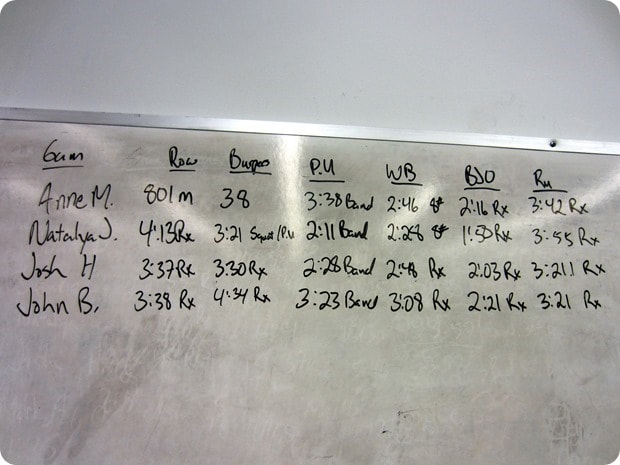 6am Row Burpees P.U WB BJO Ru
Anne M. 801m 38 3:38 Band 2:46 8# 2:16 Rx 3:42 Rx
Natalya J. 4:13Rx 3:21 Squat/P.U 2:11 Band 2:28 8# 1:55 Rx 3:55 Rx
Josh H 3:37Rx 3:30Rx 2:28 Band 2:48 Rx 2:03 Rx 3:211 Rx
John B. 3:38 Rx 4:34 Rx 3:23 Band 3:08 Rx 2:21 Rx 3:21 Rx